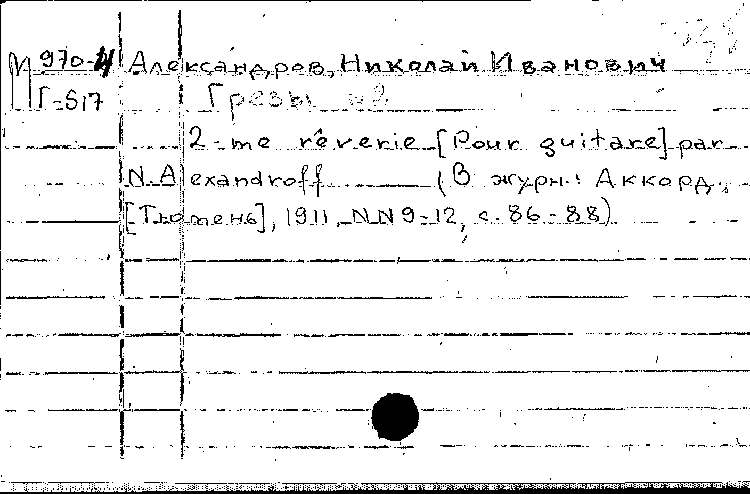 М 970-4 Александров, Николай Иванович
Г-517 Грезы №2
2-me rêverie [Pour guitare] par
N. Alexandroff (В журн.: Аккорд,
[Тюмень], 1911, NN 9-12, с. 86-88)